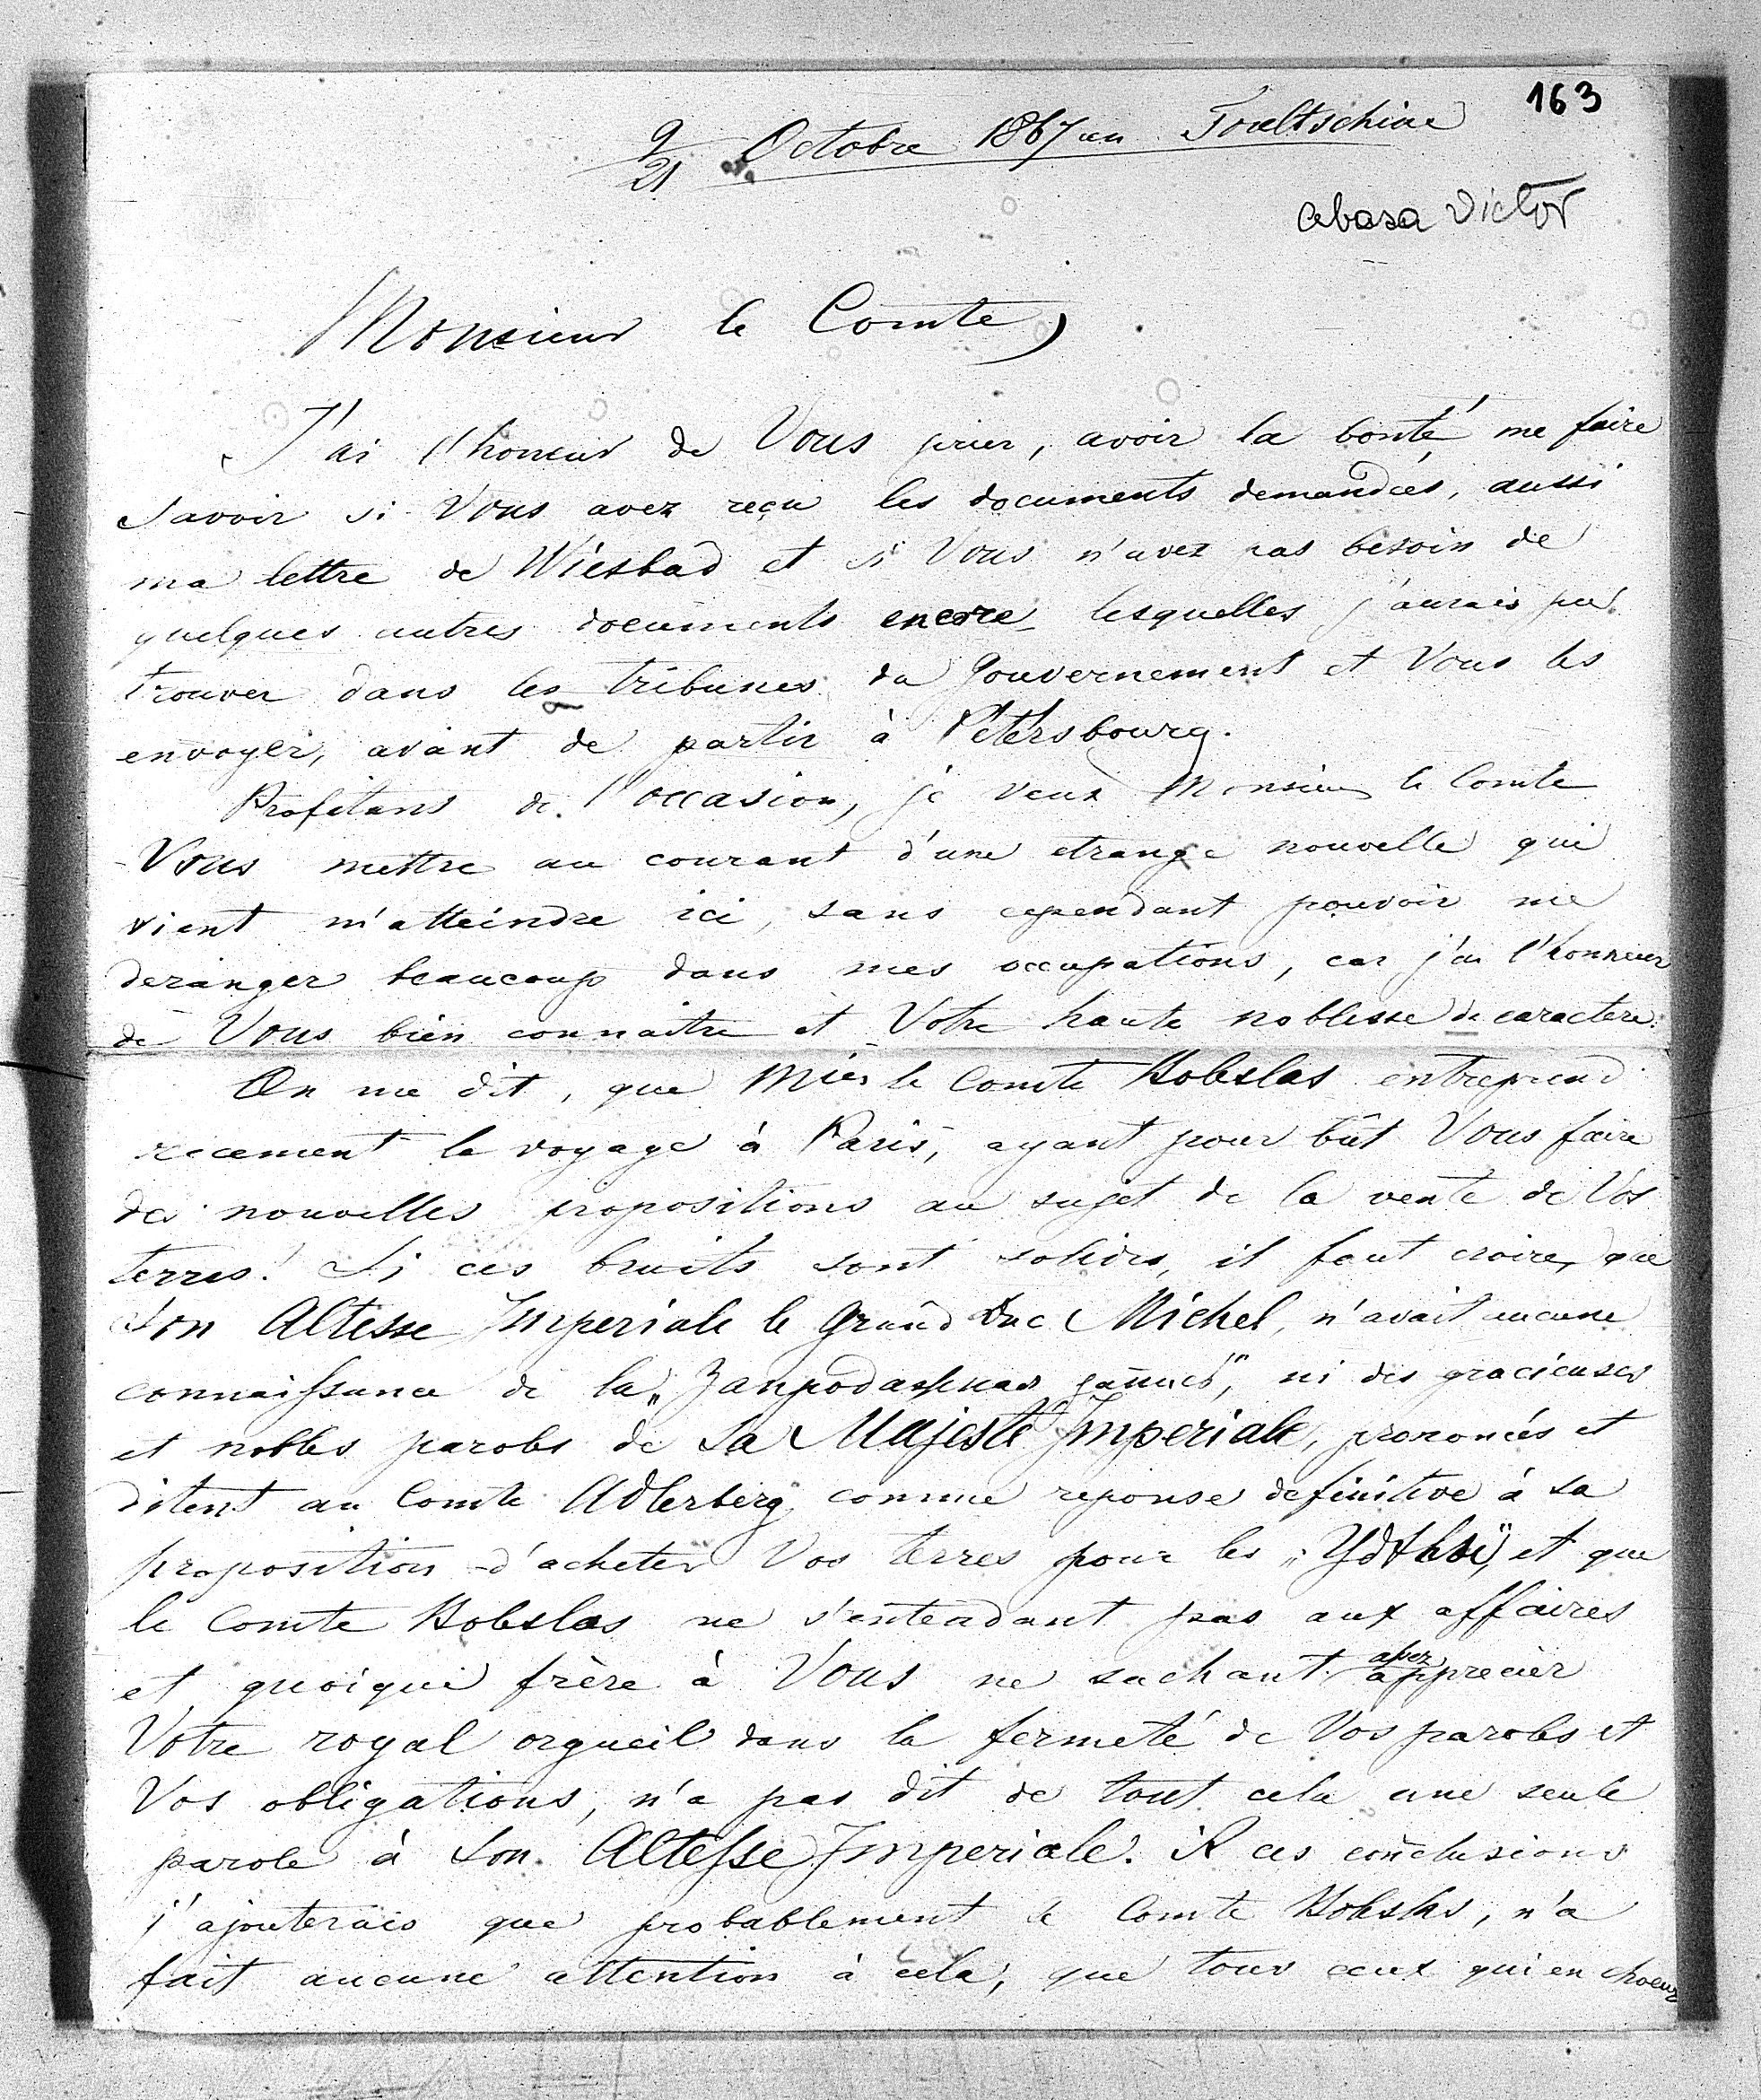 163
9/21 Octobre 1867 an Toultschine
abasa Victor
Monsieur le Comte,
J'ai l'honeur de Vous prier, avoir la bonté me faire
savoir si Vous avez reçu les documents demandées, aussi
ma lettre de Wiesbad et si Vous n'avez pas besoin de
quelques autres documents encore lesquelles j'aurais pu
trouver dans les tribunes du Gouvernement et Vous les
envoyer, avant de partir à Petersbourg.
Profitans de l'occasion, je veux Monsieur le Comte
Vous mettre au courant d'une etrange nouvelle qui
vient m'atteindre ici, sans cependant pouvoir me
deranger beaucoup dans mes occupations, car j'ai l'honneur
de Vous bien connaitre et Votre haute noblesse de caractere.
On me dit, que Msier le Comte Boleslas entreprend
recement le voyage à Paris, ayant pour bût Vous faire
des nouvelles propositions au sujet de la vente de Vos
terres! Si ces bruits sont solides, il faut croire, que
Son Altesse Imperiale le Grand Duc Michel, n'avait aucune
connaissance de la „ ", ni des gracieuses
et nobles paroles de Sa Majesté Imperiale, prononcés et
ditent au Comte Adlerberg comme reponse definitive à sa
proposition d'acheter Vos terres pour les „Удѣлы", et que
le Comte Boleslas ne s'entendant pas aux affaires
et quoique frère à Vous ne sachant assez apprecier
Votre royal orgueil dans la fermeté de Vos paroles et
Vos obligations, n'a pas dit de tout cela une seule
parole à Son Altesse Imperiale. A ces conclusions
j'ajouterais que probablement le Comte Boleslas, n'a
fait aucune attention à cela, que tous ceux qui en choeur